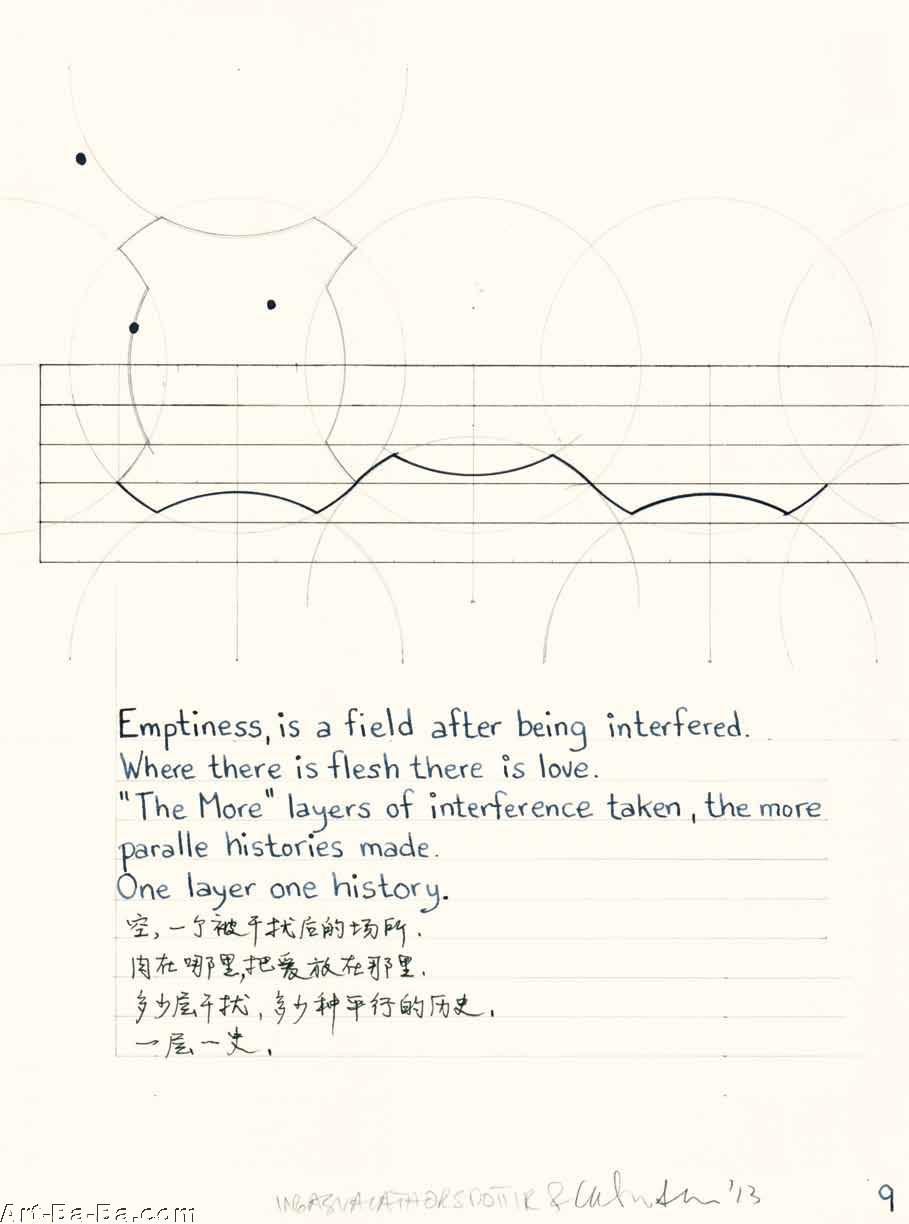 Emptiness, is a field after being interfered.
Where there is flesh there is love.
"The More" layers of interference taken, the more
paralle histories made.
One layer one history.
空，一个被干扰后的场所.
肉在哪里,把爱放在那里.
多少层干扰，多少种平行的历史.
一层一史.
& '13
9
Art-Ba-Ba.com